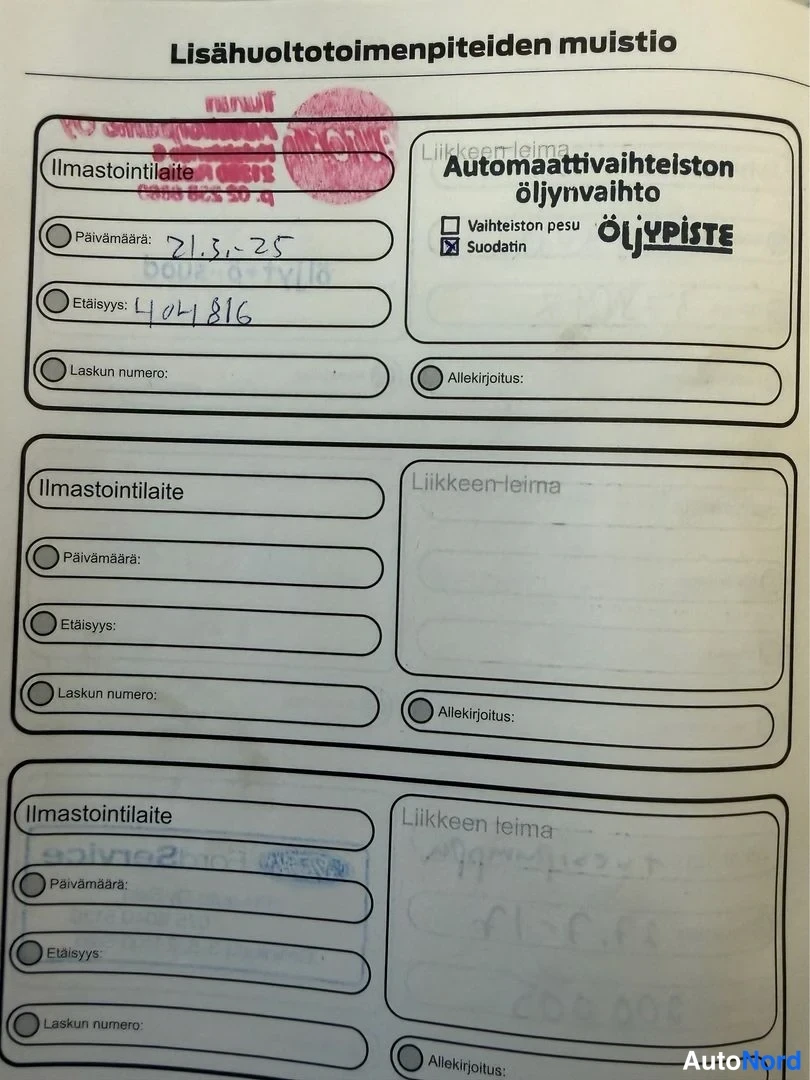 Lisähuoltotoimenpiteiden muistio
Turun
Oy
p. 02
Ilmastointilaite
Liikkeen leima
Automaattivaihteiston
öljynvaihto
Vaihteiston pesu
Suodatin
ÖljYPISTE
Päivämäärä: 21.3.-25
öljyt+ö-suod
Etäisyys: 404816
Laskun numero:
Allekirjoitus:
Ilmastointilaite
Liikkeen leima
Päivämäärä:
Etäisyys:
Laskun numero:
Allekirjoitus:
Ilmastointilaite
Liikkeen leima
FordService
Päivämäärä:
Etäisyys:
Laskun numero:
Allekirjoitus:
AutoNord